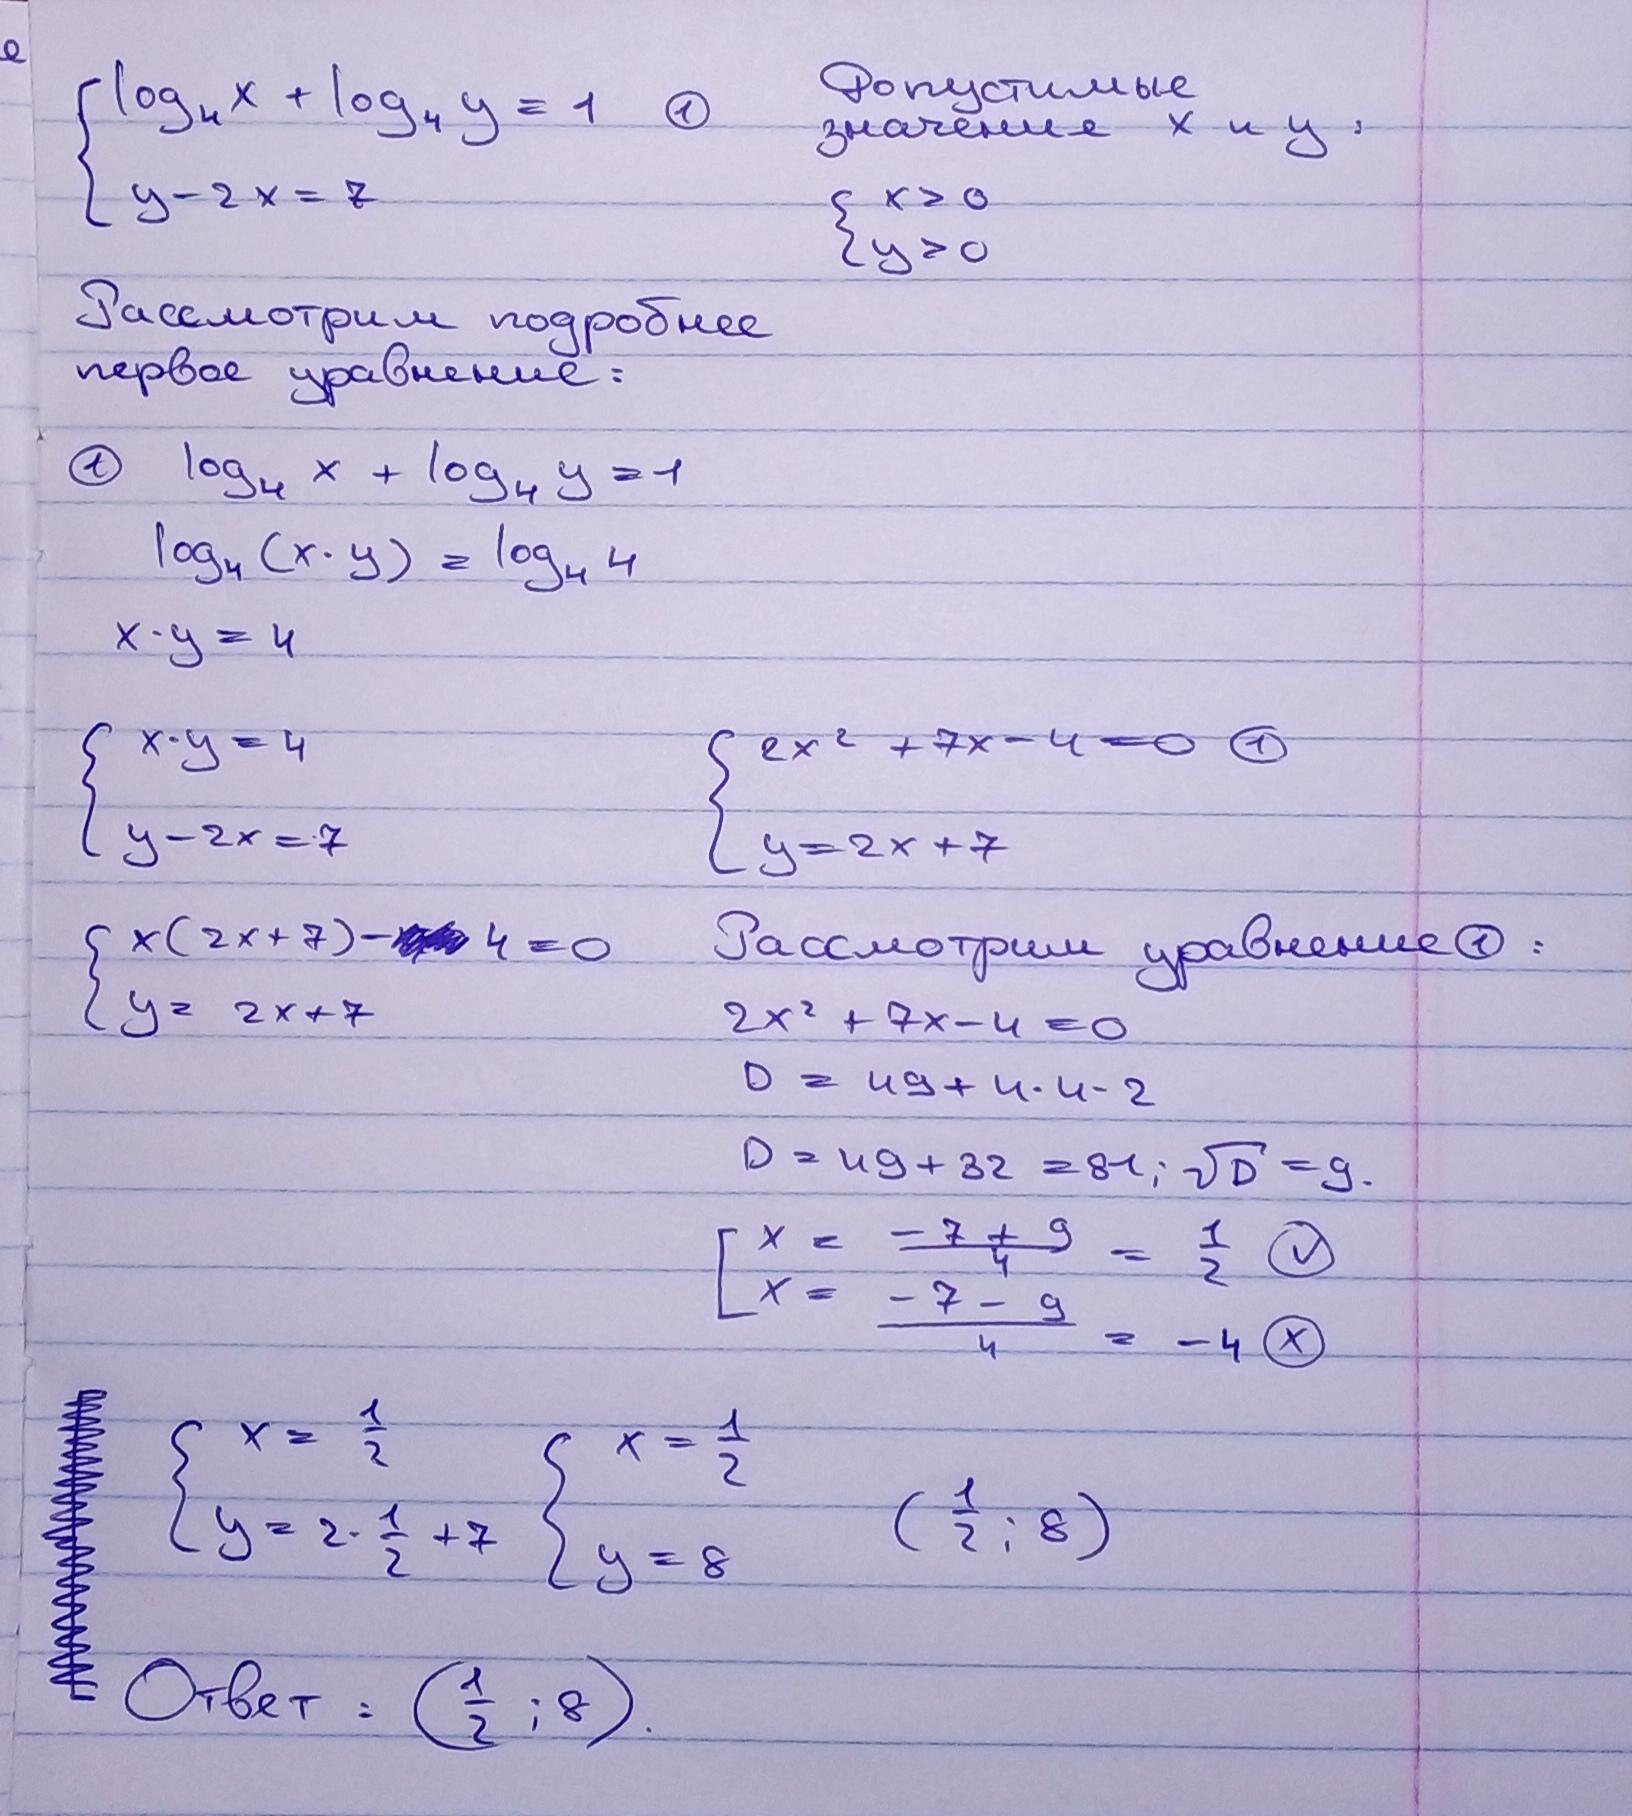 е
{ log₄ x + log₄ y = 1 ①
y - 2x = 7
Допустимые
значение x и y:
{ x > 0
y > 0
Рассмотрим подробнее
первое уравнение:
① log₄ x + log₄ y = 1
log₄ (x · y) = log₄ 4
x · y = 4
{ x · y = 4
y - 2x = 7
{ x(2x + 7) - 4 = 0
y = 2x + 7
{ 2x² + 7x - 4 = 0 ①
y = 2x + 7
Рассмотрим уравнение ① :
2x² + 7x - 4 = 0
D = 49 + 4 · 4 · 2
D = 49 + 32 = 81; √D = 9.
[ x = (-7 + 9)/4 = 1/2 ✓
x = (-7 - 9)/4 = -4 ✗
{ x = 1/2
y = 2 · 1/2 + 7
{ x = 1/2
y = 8
(1/2 ; 8)
Ответ : (1/2 ; 8).